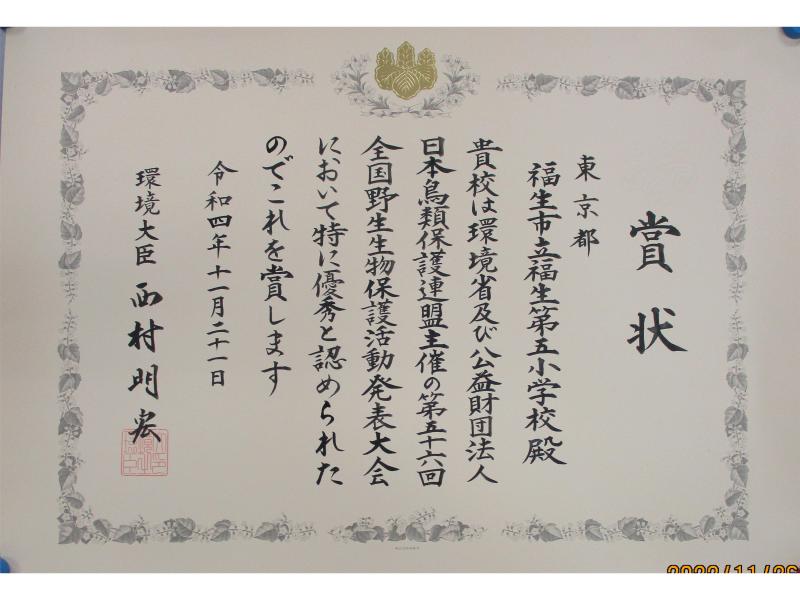 賞状
東京都
福生市立福生第五小学校殿
貴校は環境省及び公益財団法人
日本鳥類保護連盟主催の第五十六回
全国野生生物保護活動発表大会
において特に優秀と認められた
のでこれを賞します
令和四年十一月二十一日
環境大臣 西村明宏